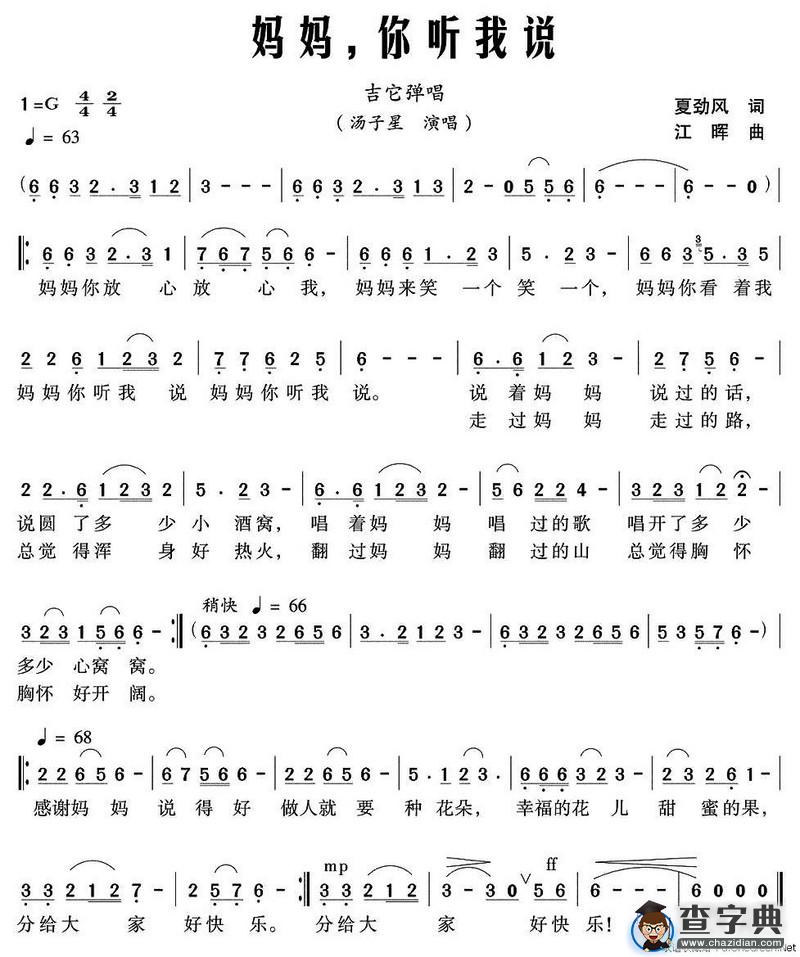 妈妈，你听我说
吉它弹唱
(汤子星 演唱)
1=G 4/4 2/4
♩= 63
夏劲风 词
江 晖 曲
(6 6 3 2 . 3 1 2 | 3 - - - | 6 6 3 2 . 3 1 3 | 2 - 0 5 5 6 | 6 - - - | 6 - - 0)
6 6 3 2 . 3 1 | 7 6 7 5 6 6 - | 6 6 6 1 . 2 3 | 5 . 2 3 - | 6 6 3 5 . 3 5
妈妈你放 心放 心我，妈妈来笑 一个 笑 一个，妈妈你看 着我
2 2 6 1 2 3 2 | 7 7 6 2 5 | 6 - - - | 6 . 6 1 2 3 - | 2 7 5 6 -
妈妈你听我 说 妈妈你听我 说。 说 着妈 妈 说过的话，
走 过妈 妈 走过的路，
2 2 . 6 1 2 3 2 | 5 . 2 3 - | 6 . 6 1 2 3 2 - | 5 6 2 2 4 - | 3 2 3 1 2 2 -
说圆 了多 少小 酒窝，唱 着妈 妈 唱 过的歌 唱开了多 少
总觉 得浑 身好 热火，翻 过妈 妈 翻 过的山 总觉得胸 怀
稍快 ♩= 66
3 2 3 1 5 6 6 - :| (6 3 2 3 2 6 5 6 | 3 . 2 1 2 3 - | 6 3 2 3 2 6 5 6 | 5 3 5 7 6 -)
多少 心窝 窝。
胸怀 好开 阔。
♩= 68
2 2 6 5 6 - | 6 7 5 6 6 - | 2 2 6 5 6 - | 5 . 1 2 3 . | 6 6 6 3 2 3 - | 2 3 2 1 2 -
感谢妈 妈 说 得 好 做人就 要 种 花朵，幸福的花 儿 甜 蜜的果，
mp ff
3 3 2 1 2 - | 2 5 7 6 - :| 3 3 2 1 2 - | 3 - 3 0 5 6 | 6 - - - | 6 0 0 0
分给大 家 好快 乐。分给大 家 好快乐！
查字典
www.chazidian.com